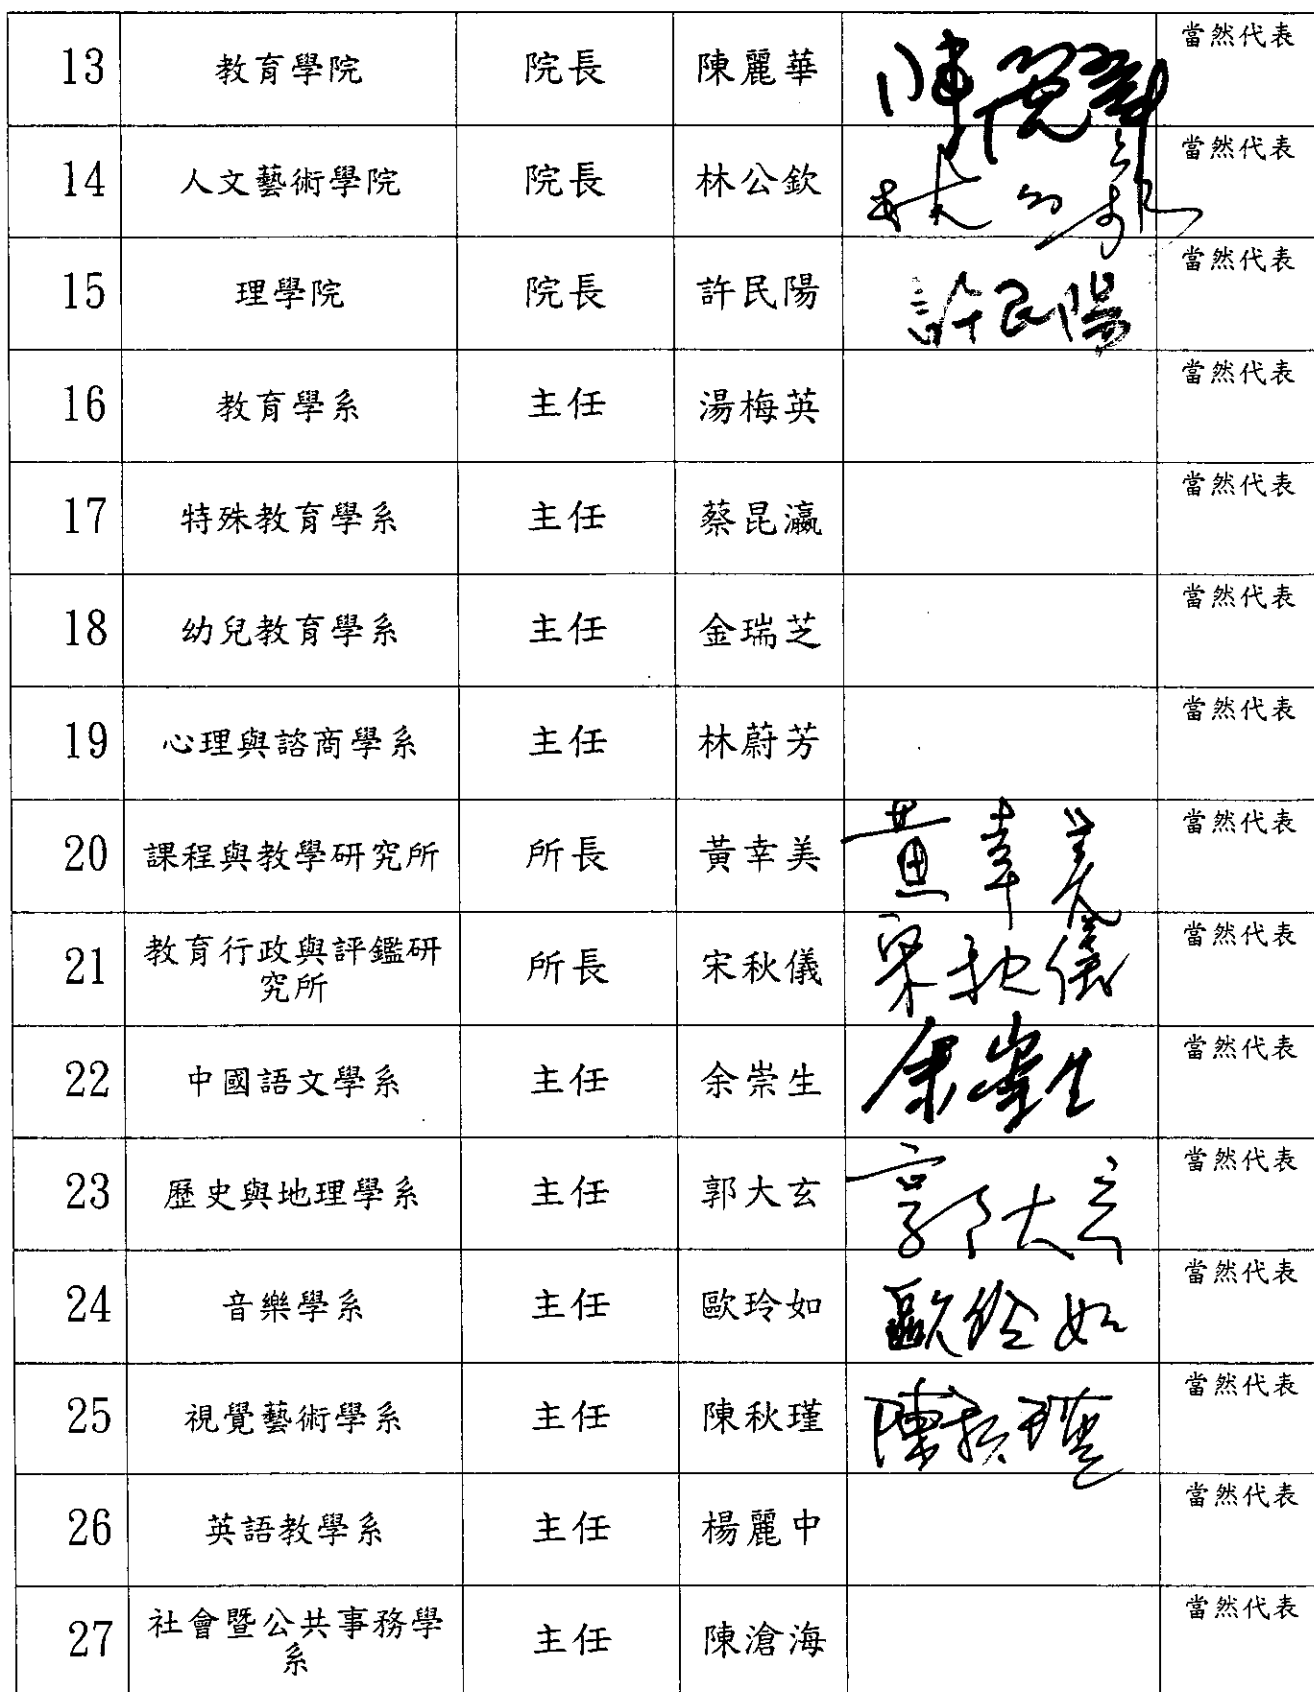 13 教育學院 院長 陳麗華 陳麗華 當然代表
14 人文藝術學院 院長 林公欽 林公欽 當然代表
15 理學院 院長 許民陽 許民陽 當然代表
16 教育學系 主任 湯梅英 當然代表
17 特殊教育學系 主任 蔡昆瀛 當然代表
18 幼兒教育學系 主任 金瑞芝 當然代表
19 心理與諮商學系 主任 林蔚芳 當然代表
20 課程與教學研究所 所長 黃幸美 黃幸美 當然代表
21 教育行政與評鑑研
究所 所長 宋秋儀 宋秋儀 當然代表
22 中國語文學系 主任 余崇生 余崇生 當然代表
23 歷史與地理學系 主任 郭大玄 郭大玄 當然代表
24 音樂學系 主任 歐玲如 歐玲如 當然代表
25 視覺藝術學系 主任 陳秋瑾 陳秋瑾 當然代表
26 英語教學系 主任 楊麗中 當然代表
27 社會暨公共事務學
系 主任 陳滄海 當然代表